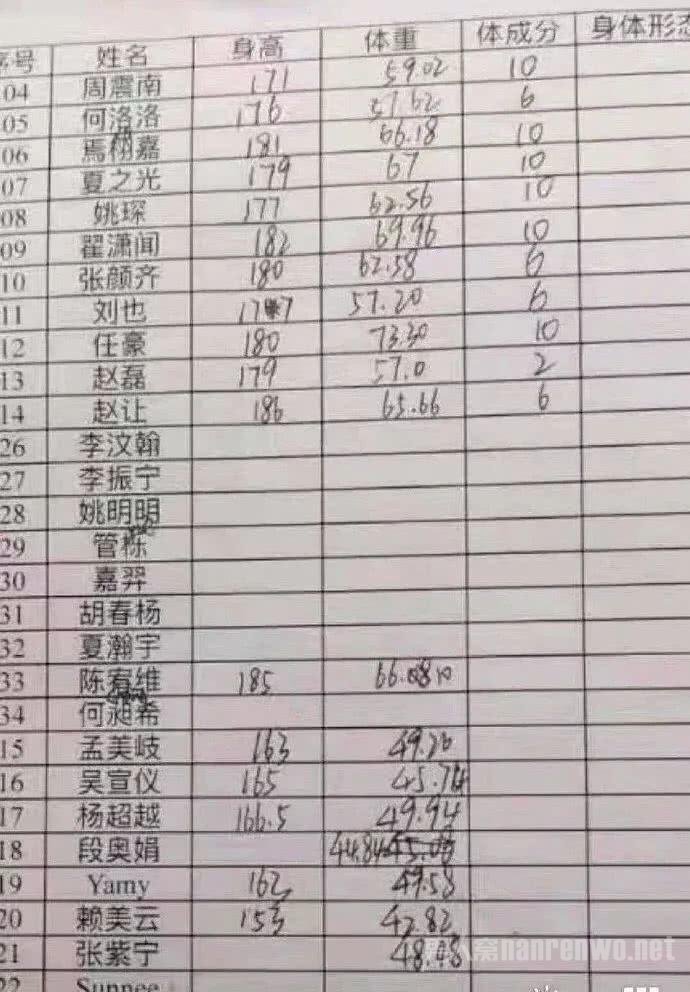 序号 姓名 身高 体重 体成分 身体形态
04 周震南 171 59.02 10
05 何洛洛 176 57.62 6
06 焉栩嘉 181 66.18 10
07 夏之光 179 67 10
08 姚琛 177 62.56 10
09 翟潇闻 182 69.96 10
10 张颜齐 180 62.58 6
11 刘也 177 57.20 6
12 任豪 180 73.30 10
13 赵磊 179 57.0 2
14 赵让 186 65.66 6
26 李汶翰
27 李振宁
28 姚明明
29 管栎
30 嘉羿
31 胡春杨
32 夏瀚宇
33 陈宥维 185 66.08 10
34 何昶希
15 孟美岐 163 49.26
16 吴宣仪 165 45.74
17 杨超越 166.5 49.94
18 段奥娟 44.84
19 Yamy 162 49.58
20 赖美云 153 42.82
21 张紫宁 48.48
22 Sunnee
nanrenwo.net